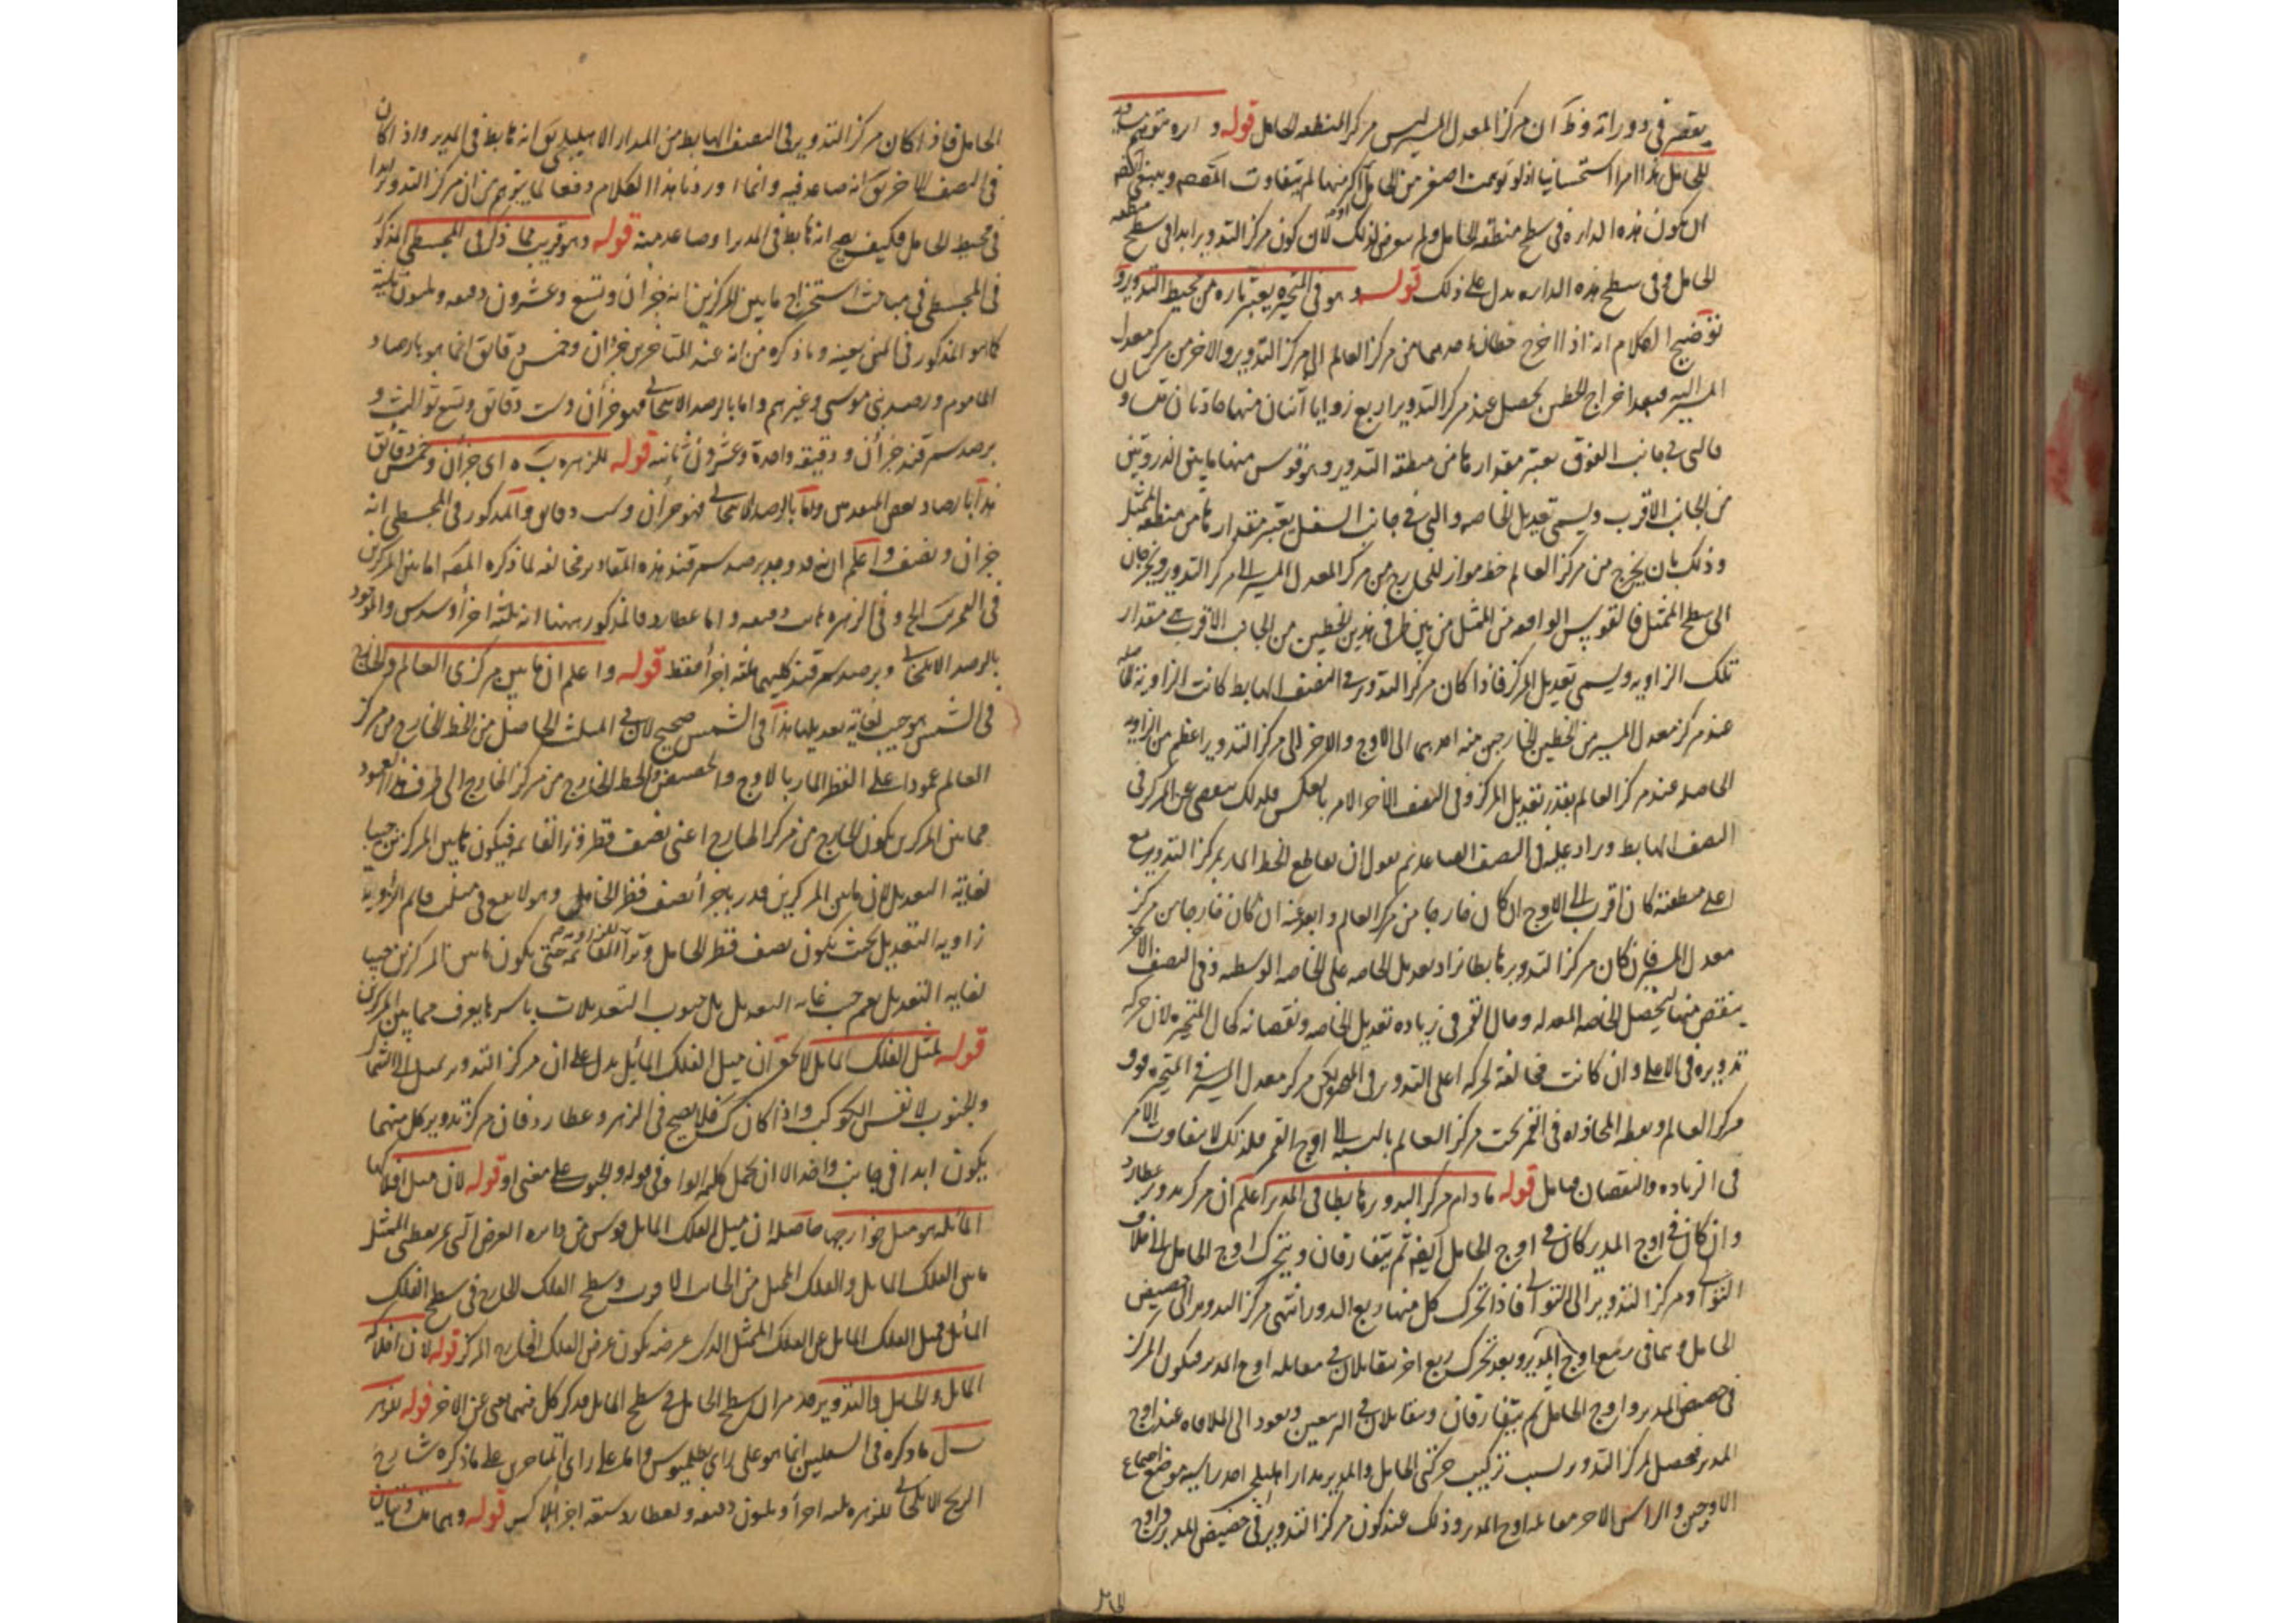 يعتبر في دوراته وظ ان مركز المعدل المسير ليس مركز المنطقه الحامل قوله دائره متوهم
للحامل هذا امرا استحسانيا اذ لو توهمت اصغر من الحامل او اكبر منها لم يتفاوت المقصم وينبغي
ان تكون هذه الدائره في سطح منطقه الحامل ولم يتعرض لذلك لان كون مركز التدوير ابدا في سطح منطقه
الحامل وفي سطح هذه الدائره يدل على ذلك قوله وهو في المتحيره يعتبر تاره من محيط التدوير
توضيح الكلام انه اذا اخرج خطان احدهما من مركز العالم الى مركز التدوير والاخر من مركز معدل
المسير اليه فبعد اخراج الخطين يحصل عند مركز التدوير اربع زوايا اثنتان منها حادتان متساويتان
فالتي في جانب الفوق يعتبر مقدارها من منطقه التدوير وهو قوس منها ما بين الذروتين
من الجانب الاقرب ويسمى تعديل الخاصه والتي في جانب السفل يعتبر مقدارها من منطقه الممثل
وذلك بان يخرج من مركز العالم خط مواز للخارج من مركز المعدل المسير الى مركز التدوير ويخرجان
الى سطح الممثل فالقوس الواقعه من الممثل من بين طرفي هذين الخطين من الجانب الاقرب هي مقدار
تلك الزاويه ويسمى تعديل المركز فاذا كان مركز التدوير في النصف الهابط كانت الزاويه الحاصله
عند مركز معدل المسير من الخطين الخارجين منه احدهما الى الاوج والاخر الى مركز التدوير اعظم من الزاويه
الحاصله عند مركز العالم بقدر تعديل المركز وفي النصف الاخر الامر بالعكس فلذلك ينقص عن المركز في
النصف الهابط ويزاد عليه في النصف الصاعد ثم نقول ان تقاطع الخط المار بمركز التدوير مع
اعلى منطقته كان اقرب الى الاوج ان كان خارجا من مركز العالم وابعد عنه ان كان خارجا من مركز
معدل المسير فان كان مركز التدوير هابطا زاد تعديل الخاصه على الخاصه الوسطه وفي النصف الاخر
ينقص منها ليحصل الخاصه المعدله وحال القمر في زياده تعديل الخاصه ونقصانه كحال المتحيره لان حركه
تدويره في الاعلى وان كانت مخالفه لحركه اعلى التدوير في المتحيره لكن مركز معدل المسير في المتحيره فوق
مركز العالم ونقطه المحاذاه في القمر تحت مركز العالم بالنسبه الى اوج القمر فلذلك لا يتفاوت الامر
في الزياده والنقصان فتامل قوله ما دام مركز التدوير هابطا في المدير اعلم ان مركز تدوير عطارد
وان كان في اوج المدير كان في اوج الحامل ايضا ثم يتفارقان ويتحرك اوج الحامل الى خلاف
التوالي ومركز التدوير الى التوالي فاذا تحرك كل منها ربع الدور انتهى مركز التدوير الى حضيض
الحامل وهما في ربيع اوج المدير وبعد تحرك ربع اخر يتقابلان في مقابله اوج المدير فيكون المركز
في حضيض المدير واوج الحامل ثم يتفارقان ويتقابلان في التربيعين ويعود الى الملاقاه عند اوج
المدير فيحصل لمركز التدوير بسبب تركيب حركتي الحامل والمدير مدار اهليلجي احد راسيه موضع اجتماع
الاوجين والراس الاخر مقابله اوج المدير وذلك عند كون مركز التدوير في حضيض المدير واوج
الحامل
الحامل فاذا كان مركز التدوير في النصف الهابط من المدار الاهليلجي يق انه هابط في المدير واذا كان
في النصف الاخر يق انه صاعد فيه وانما اوردنا هذا الكلام دفعا لما يتوهم من ان مركز التدوير ابدا
في محيط الحامل فكيف يصح انه هابط في المدير او صاعد فيه قوله وهو قريب مما ذكر في المجسطي المذكور
في المجسطي في مباحث استخراج ما بين المركزين انه جزان وتسع وعشرون دقيقه وثلثون ثانيه
كما هو المذكور في المتن بعينه وما ذكره من انه عند المتاخرين جزان وخمس دقائق انما هو بارصاد
المامون ورصد بني موسى وغيرهم واما بالرصد الايلخاني فهو جزان وست دقائق وتسع ثوالث و
برصد سمرقند جزان ودقيقه واحدة وعشرون ثانيه قوله للزهره ب ه اي جزان وخمس دقائق
هذا بارصاد بعض المتقدمين واما بالرصد الايلخاني فهو جزان وست دقائق والمذكور في المجسطي انه
جزان ونصف واعلم انه قد وجد برصد سمرقند هذه المقادير مخالفه لما ذكره المصه اما بين المركزين
في القمر الخ وفي الزهره دقيقه واما عطارد فالمذكور ههنا انه ثلثه اجزا وسدس والموجود
بالرصد الايلخاني وبرصد سمرقند كليهما ثلثه اجزا فقط قوله واعلم ان ما بين مركزي العالم والخارج
في الشمس هو جيب لغايه تعديلها هذا في الشمس صحيح لان في المثلث الحاصل من الخط الخارج من مركز
العالم عمودا على القطر المار بالاوج والحضيض والخط الخارج من مركز الخارج الى طرف هذا العمود
مما بين المركزين يكون الخارج من مركز الخارج اعني نصف قطر وتر القائمه فيكون ما بين المركزين جيبا
لغايه التعديل لان ما بين المركزين قدر باجزا نصف قطر الحامل وهو لا يقع في مثلث قائم الزاويه
زاويه التعديل بحيث يكون نصف قطر الحامل وترا للقائمه حتى يكون ما بين المركزين جيبا
لغايه التعديل نعم جيب غايه التعديل بل جيوب التعديلات باسرها يعرف مما بين المركزين
قوله لمثل الفلك المايل لا يخفى ان ميل الفلك المائل يدل على ان مركز التدوير يميل الى الشمال
والجنوب لا نفس الكوكب واذا كان كك فلا يصح في الزهره وعطارد فان مركز تدوير كل منهما
يكون ابدا في جانب واحد الا ان يحمل كلمه الواو في قوله والجنوب على معنى او قوله لان ميل افلاكها
المائله هو ميل خوارجها حاصله ان ميل الفلك المايل قوس من دائره العرض التي تمر بقطبي الممثل
ما بين الفلك المايل والفلك الممثل من الجانب الاقرب وسطح الفلك الخارج في سطح الفلك
المائل فميل الفلك المايل عن الفلك الممثل الذي عرضه يكون عرض الفلك الخارج المركز قوله لان افلاك
المايل والحامل والتدوير قد مر ان سطح الحامل في سطح المايل فذكر كل منهما يغني عن الاخر قوله
ما ذكره في السفليين انما هو على راي بطلميوس واما على راي المتاخرين على ما ذكره شارح
الزيج الايلخاني للزهره ثلثه اجزا وثلثون دقيقه ولعطارد سته اجزا قوله وهما متساويتان